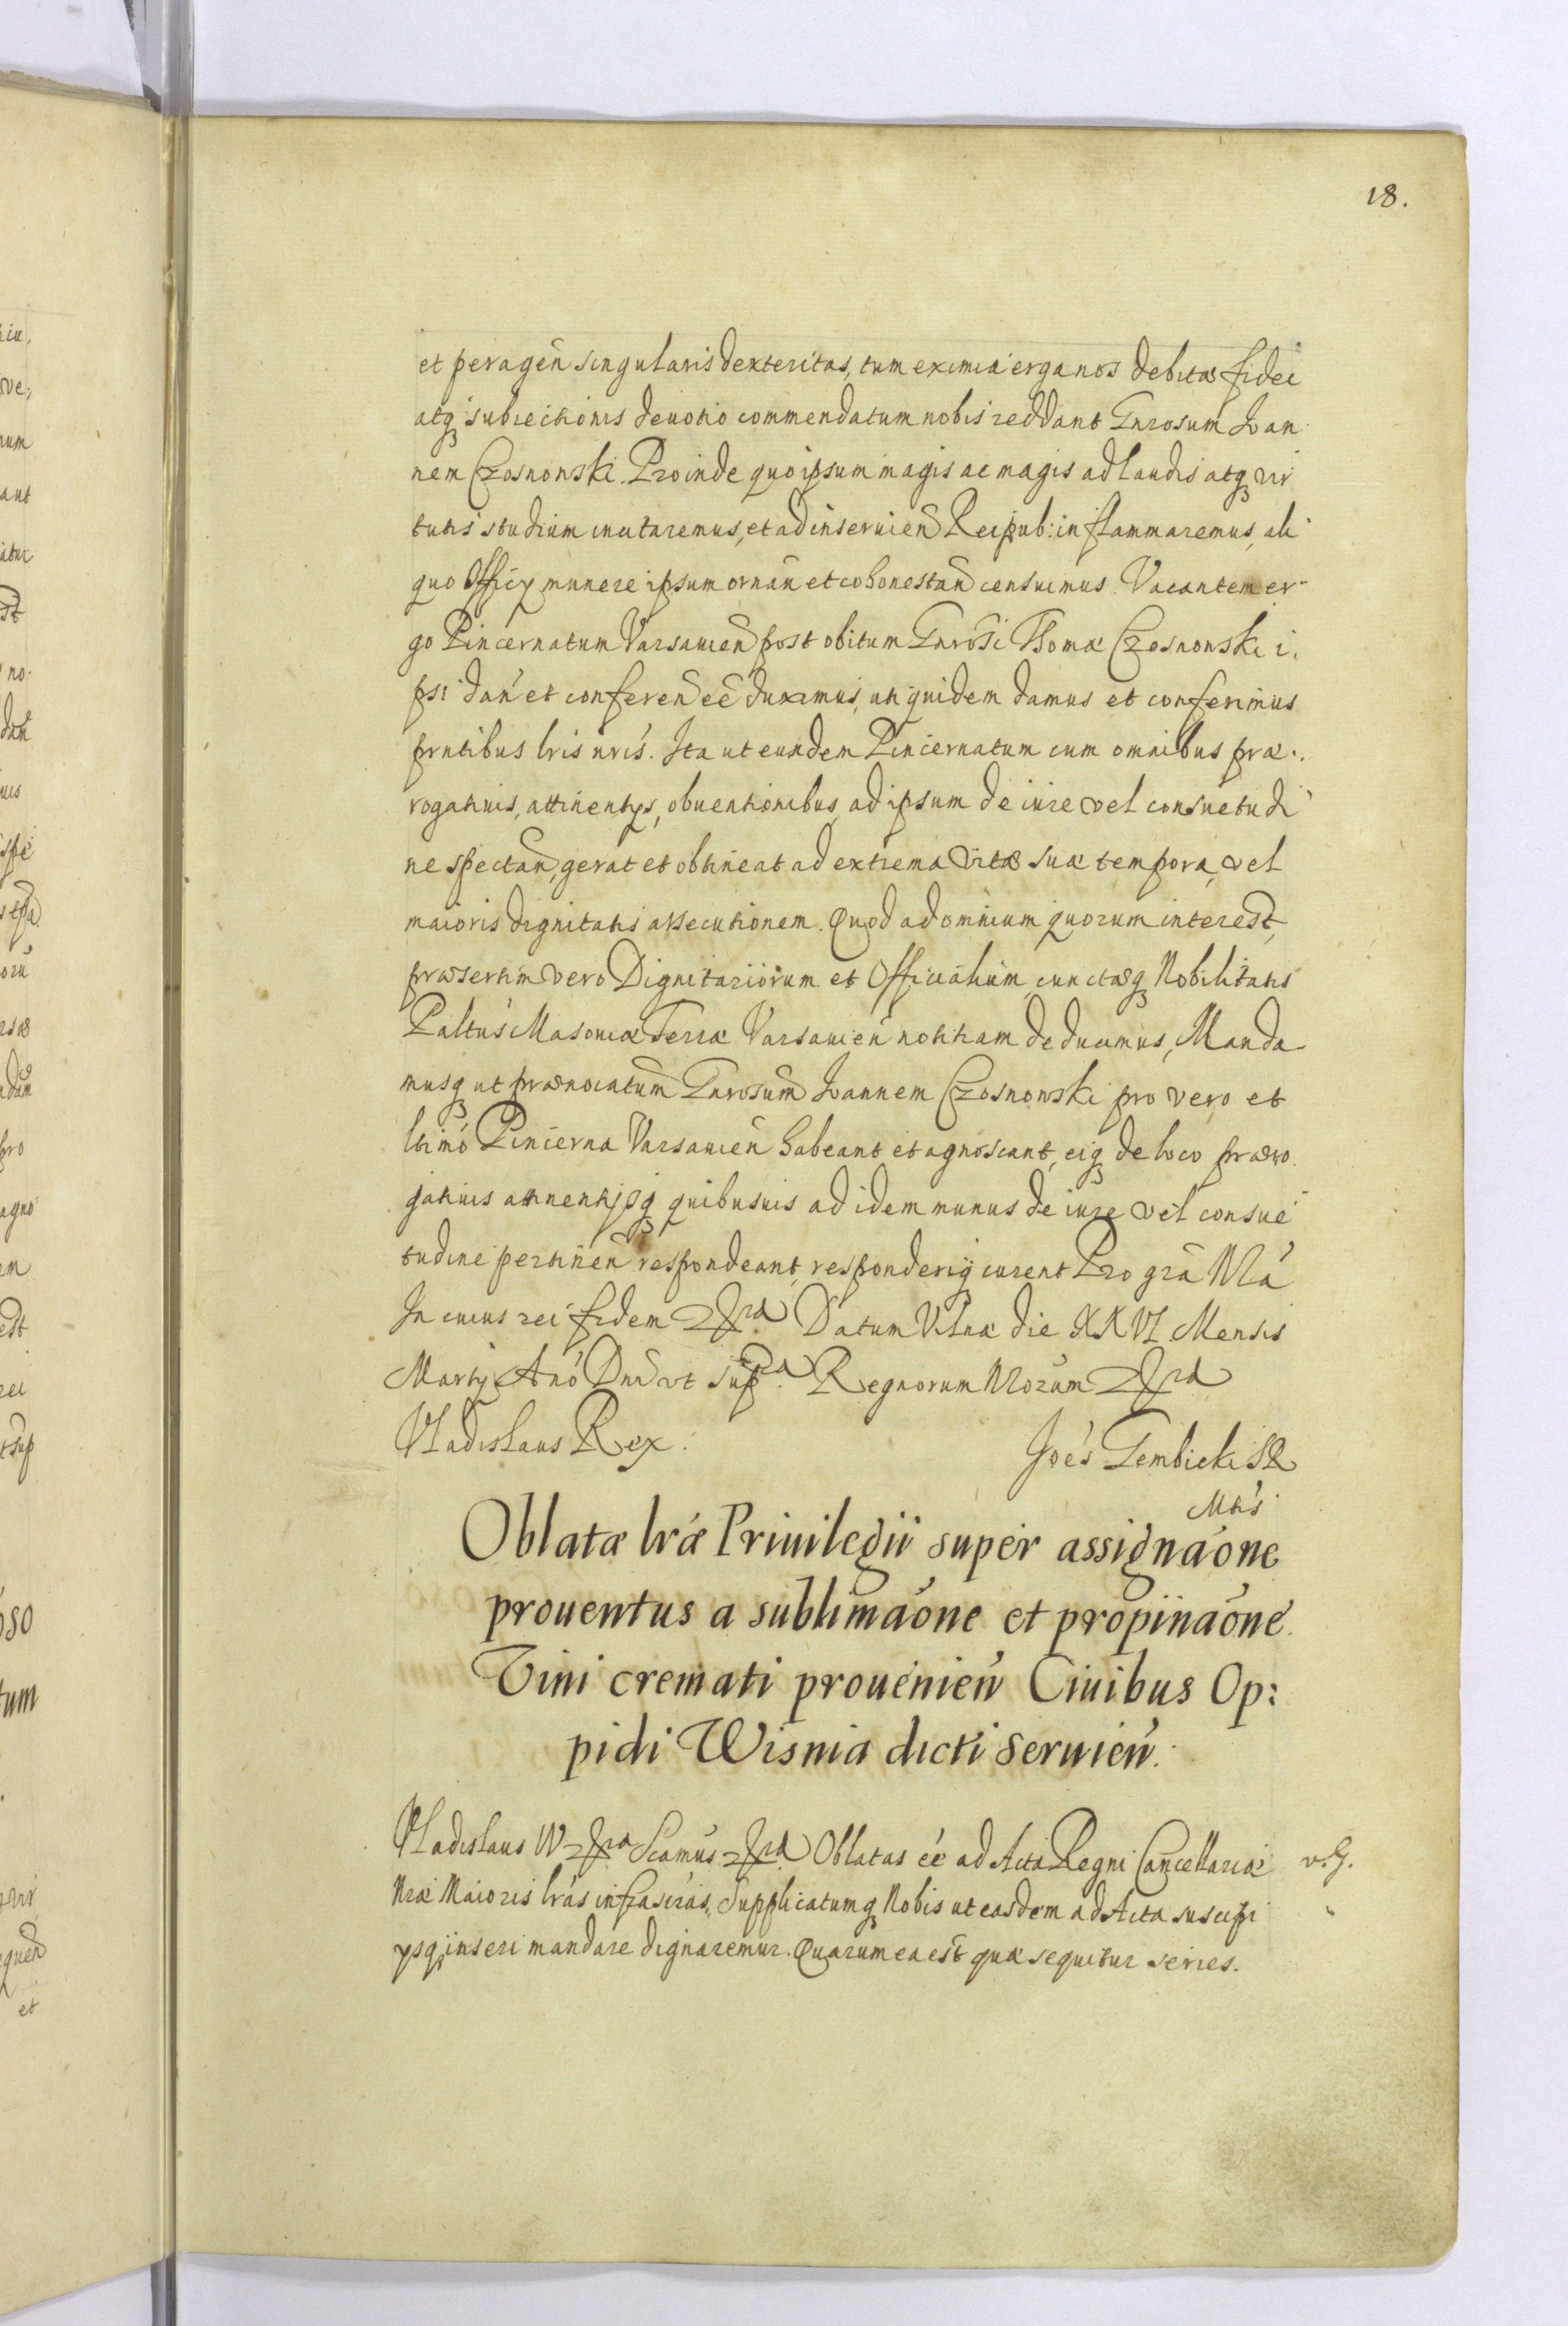 18.
et peragen̄ singularis dexteritas, tum eximia erga nos debitæ fidei
atq subiectionis deuotio commendatum nobis reddant Gnrosum Joan
nem Czosnowski. Proinde quo ipsum magis ac magis ad laudis atq vir
tutis studium incitaremus, et ad inseruien̄ Reipub: inflammaremus, ali
quo Officÿ munere ipsum ornan̄ et cohonestan̄ censuimus. Vacantem er
go Pincernatum Varsauien̄ post obitum Gnrosi Thomæ Czosnowski i
psi dan̄ et conferen̄ ee̅ duximus, uti quidem damus et conferimus
prntibus lris nris. Ita ut eundem Pincernatum cum omnibus præ
rogatiuis, attinentijs, obuentionibus, ad ipsum de iure vel consuetudi
ne spectan̄, gerat et obtineat ad extrema vitæ suæ tempora, vel
maioris dignitatis assecutionem. Quod ad omnium quorum interest,
præsertim vero Dignitariorum et Officialium, cunctæq Nobilitatis
Paltus Masouiæ Terræ Varsauien̄ notitiam deducimus, Manda-
musq ut prænocatum Gnrosum Joannem Czosnowski pro vero et
ltimo Pincerna Varsauien̄ habeant et agnoscant, eiq de loco præro
gatiuis attinentijsq quibusuis ad idem munus de iure vel consue
tudine pertinen̄ respondeant, responderiq curent Pro gra̅ Nra
In cuius rei fidem &ra Datum Vilnæ die XXVI Mensis
Martij Ano Dni vt supra Regnorum Nrorum &ra
Vladislaus Rex.
Joes Gembicki SR
Mtis
Oblatæ lræ Priuilegii super assignaone
prouentus a sublimaone et propinaone
Vini cremati prouenien̄ Ciuibus Op:
pidi Wisnia dicti seruien̄.
Vladislaus IV &ra Scamus &ra Oblatas ee̅ ad Acta Regni Cancellariæ
v. G.
Nræ Maioris lras infrascras, Supplicatumq Nobis ut easdem ad Acta suscipi
ysq inseri mandare dignaremur. Quarum ea est quæ sequitur series.